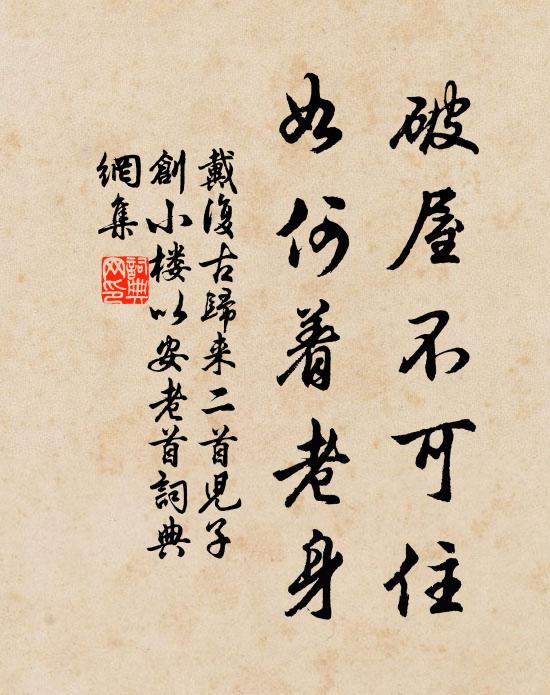 破屋不可住
如何着老身
戴復古歸来二首児子
創小楼以安老首詞典
網集
詞典
网印